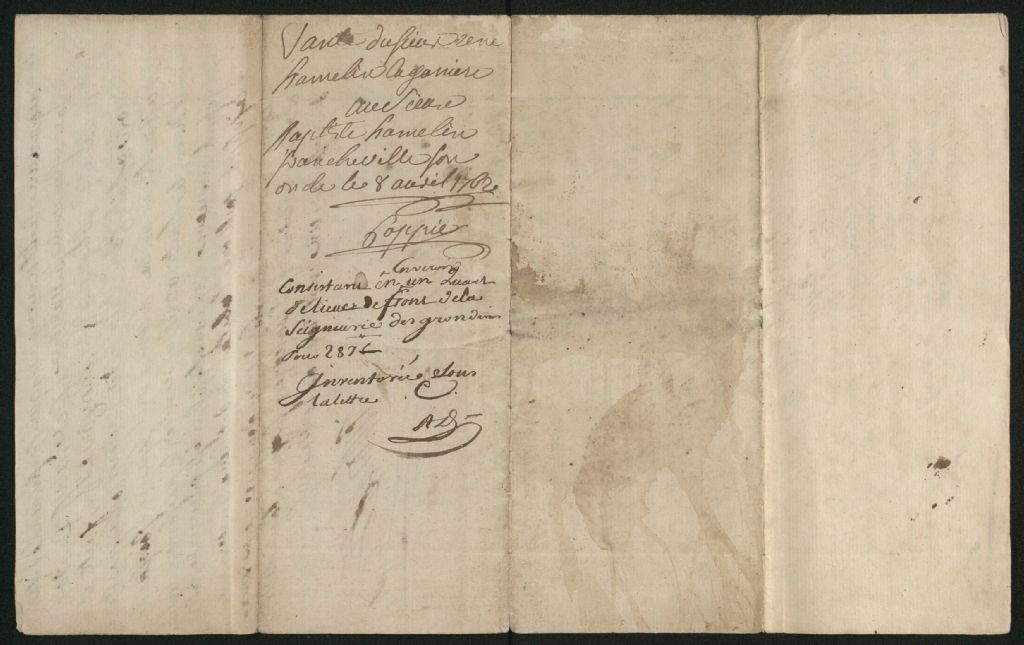 Vante du sieur rene
hamelin laganiere
au Sieur
Baptte hamelin
francheville son
oncle le 8 avril 1762
Coppie
Environ
Consistant en un quart
de lieue de front de la
Seigneurie des grondines
Pour 287#
Inventoriée sous
la lettre C.
AD